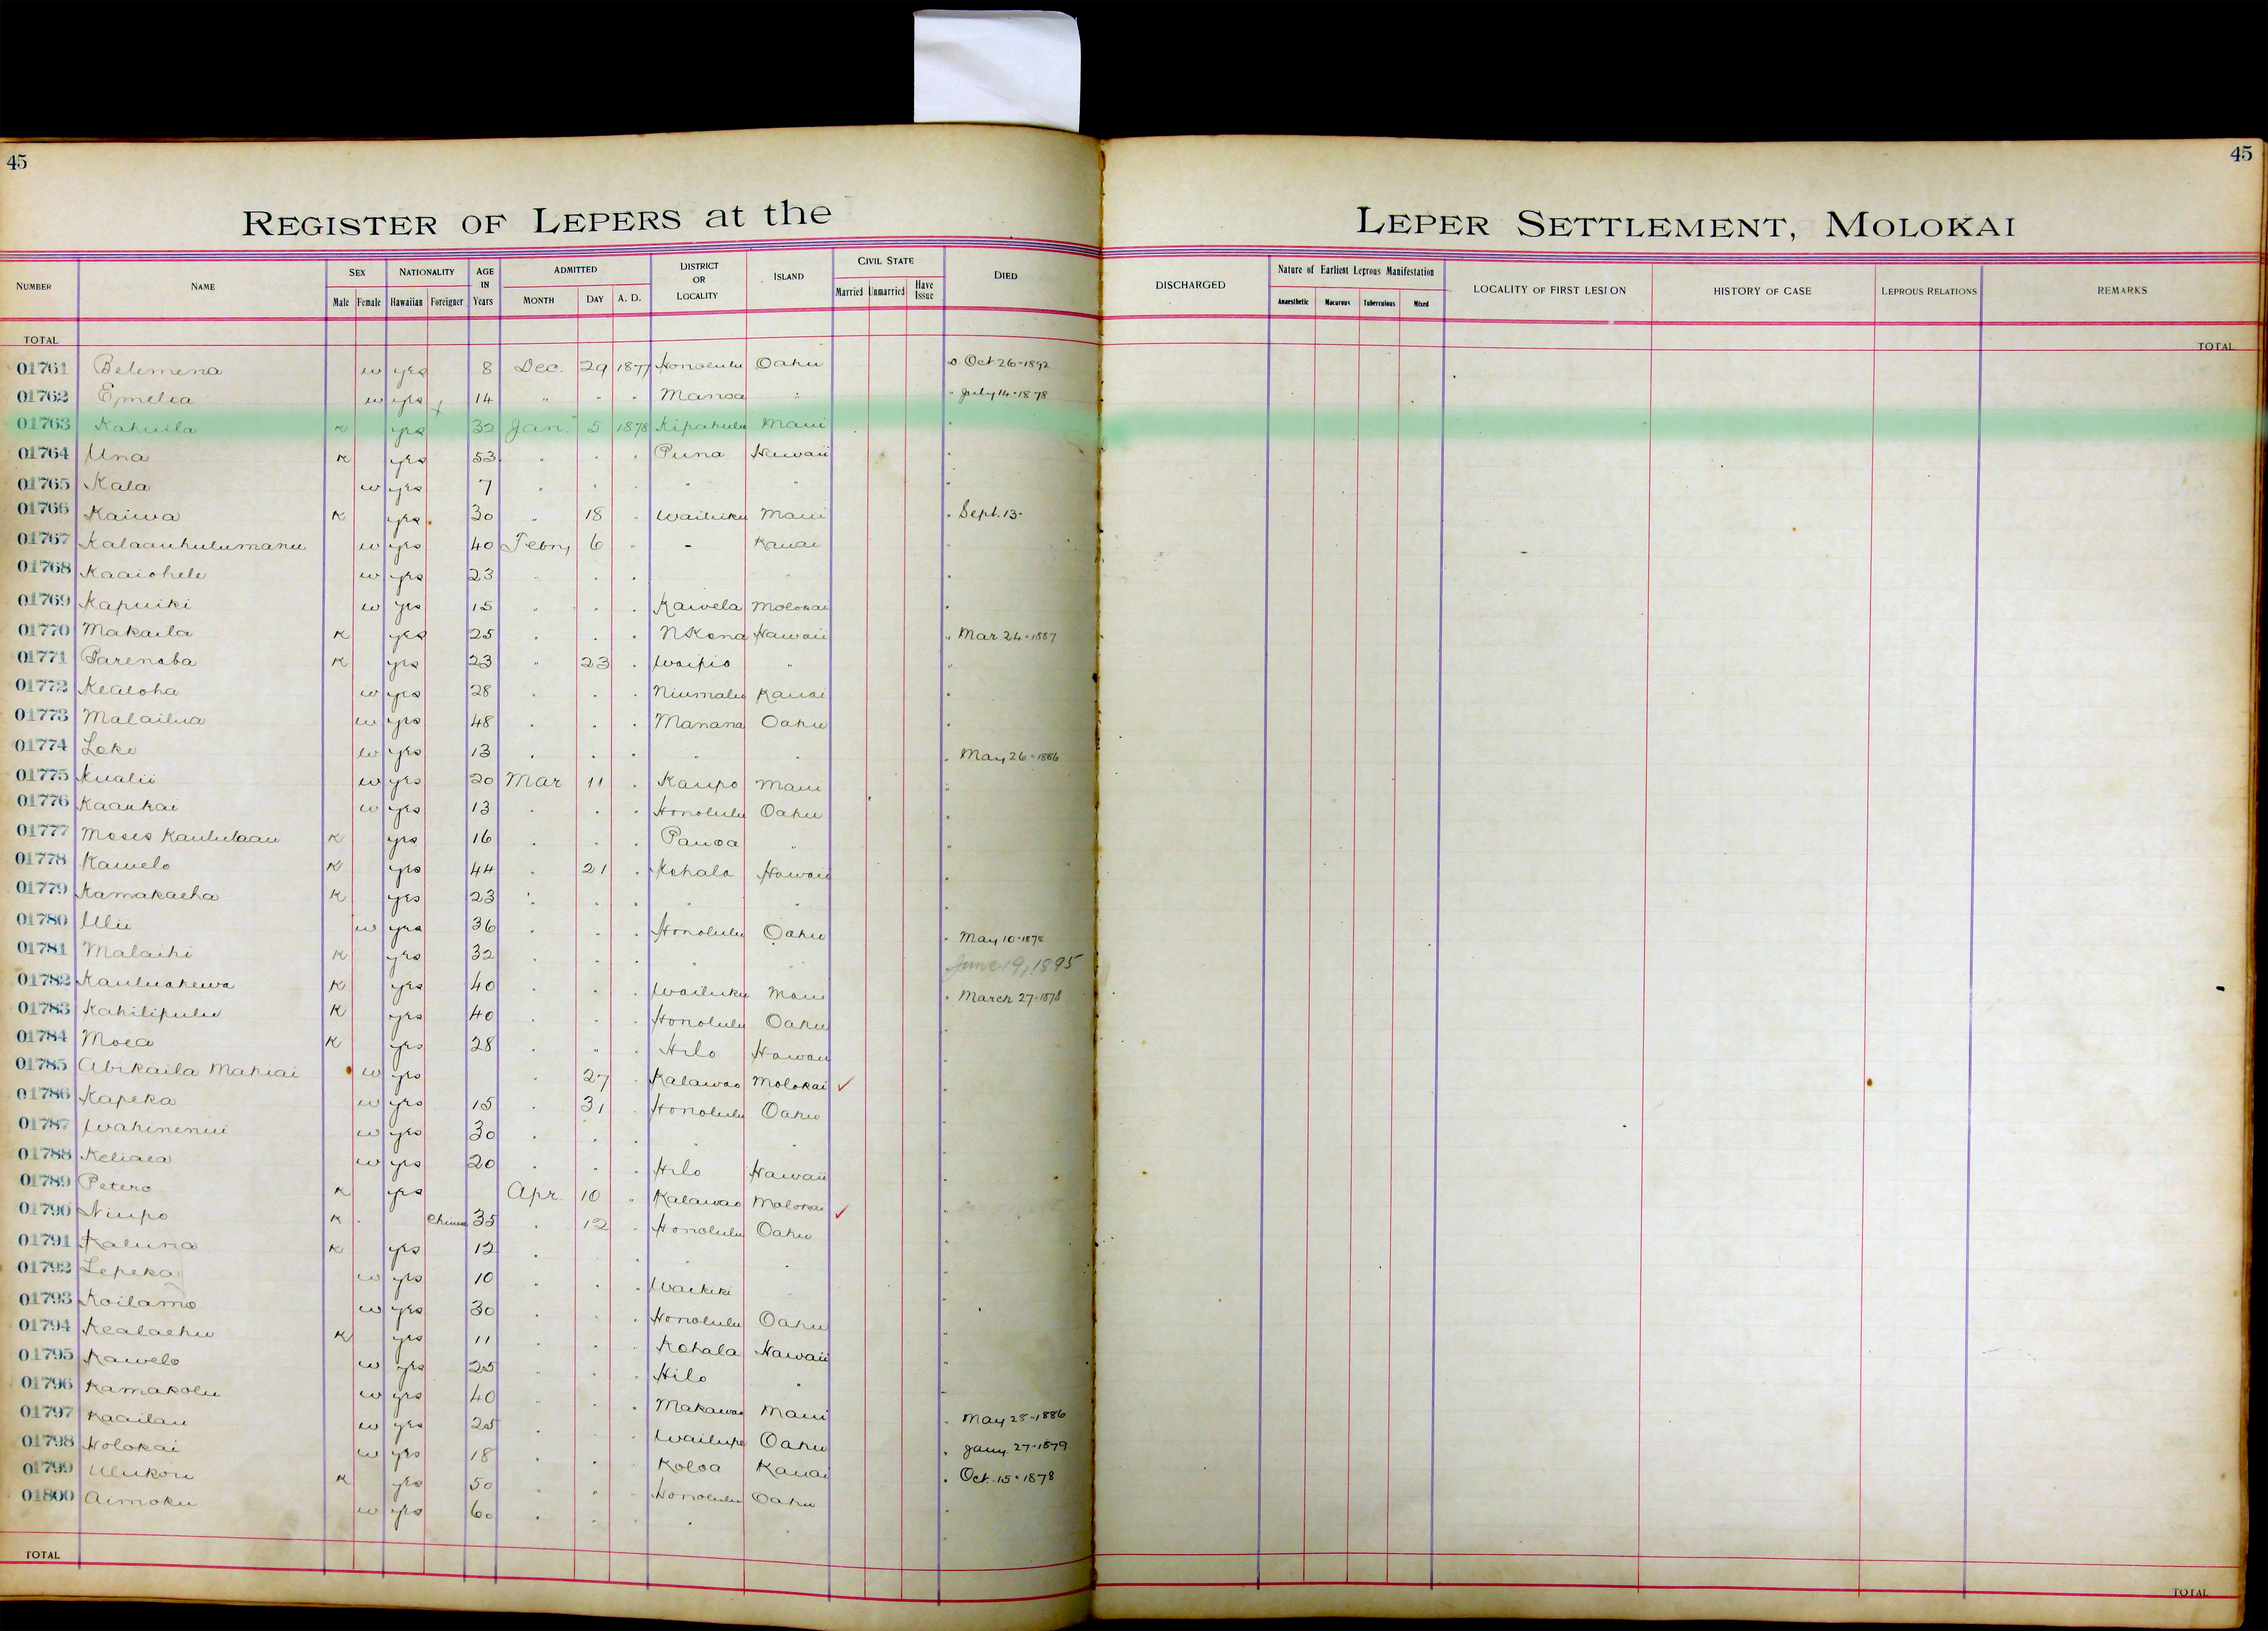 45
45
REGISTER OF LEPERS at the LEPER SETTLEMENT, MOLOKAI
NUMBER NAME SEX NATIONALITY AGE IN Years ADMITTED DISTRICT OR LOCALITY ISLAND CIVIL STATE DIED DISCHARGED Nature of Earliest Leprous Manifestation LOCALITY OF FIRST LESION HISTORY OF CASE LEPROUS RELATIONS REMARKS
Male Female Hawaiian Foreigner MONTH DAY A. D. Married Unmarried Have Issue Anaesthetic Macurous Tuberculous Mixed
TOTAL TOTAL
01761 Belemena w yes 8 Dec. 29 1877 Honolulu Oahu D. Oct 26-1892
01762 Emelia w yes 14 " " " Manoa " " July 14-1878
01763 Kahuila K yes 32 Jan. 5 1878 Kipahulu Maui "
01764 Una K yes 53 " " " Puna Hawaii "
01765 Kala w yes 7 " " " " " "
01766 Kaiwa K yes 30 " 18 " Wailuku Maui " Sept. 13-
01767 Kalaauhulumanu w yes 40 Febry 6 " - Kauai
01768 Kaaiohele w yes 23 " " " " "
01769 Kapuiki w yes 15 " " " Kawela Molokai "
01770 Makaila K yes 25 " " " N Kona Hawaii " Mar 24-1887
01771 Parenaba K yes 23 " 23 " Waipio " "
01772 Kealoha w yes 28 " " " Niumalu Kauai "
01773 Malailua w yes 48 " " " Manana Oahu "
01774 Loke w yes 13 " " " " " " May 26-1886
01775 Kualii w yes 20 Mar 11 " Kaupo Maui "
01776 Kaaukai w yes 13 " " " Honolulu Oahu "
01777 Moses Kaululaau K yes 16 " " " Pauoa " "
01778 Kawelo K yes 44 " 21 " Kohala Hawaii "
01779 Kamakaeha K yes 23 " " " " " "
01780 Ulii w yes 36 " " " Honolulu Oahu " May 10-1878
01781 Malaihi K yes 32 " " " " " June 19, 1895
01782 Kauluahewa K yes 40 " " " Wailuku Maui " March 27-1878
01783 Kahilipulu K yes 40 " " " Honolulu Oahu "
01784 Moea K yes 28 " " " Hilo Hawaii "
01785 Abikaila Mahiai w yes " 27 " Kalawao Molokai ✓ "
01786 Kapeka w yes 15 " 31 " Honolulu Oahu "
01787 Wahinenui w yes 30 " " " " " "
01788 Keliaea w yes 20 " " " Hilo Hawaii "
01789 Petero K yes Apr. 10 " Kalawao Molokai ✓ "
01790 Niupo K Chinese 35 " 12 " Honolulu Oahu "
01791 Kaluna K yes 12 " " "
01792 Lepeka w yes 10 " " " Waikiki "
01793 Koilamo w yes 30 " " " Honolulu Oahu "
01794 Kealaehu K yes 11 " " " Kohala Hawaii "
01795 Kawelo w yes 25 " " " Hilo " "
01796 Kamakolu w yes 40 " " " Makawao Maui " May 25-1886
01797 Kaailau w yes 25 " " " Wailupe Oahu " Jany. 27-1879
01798 Holokai w yes 18 " " " Koloa Kauai " Oct. 15-1878
01799 Ulukou K yes 50 " " " Honolulu Oahu "
01800 Aimoku w yes 60 " " " " " "
TOTAL TOTAL